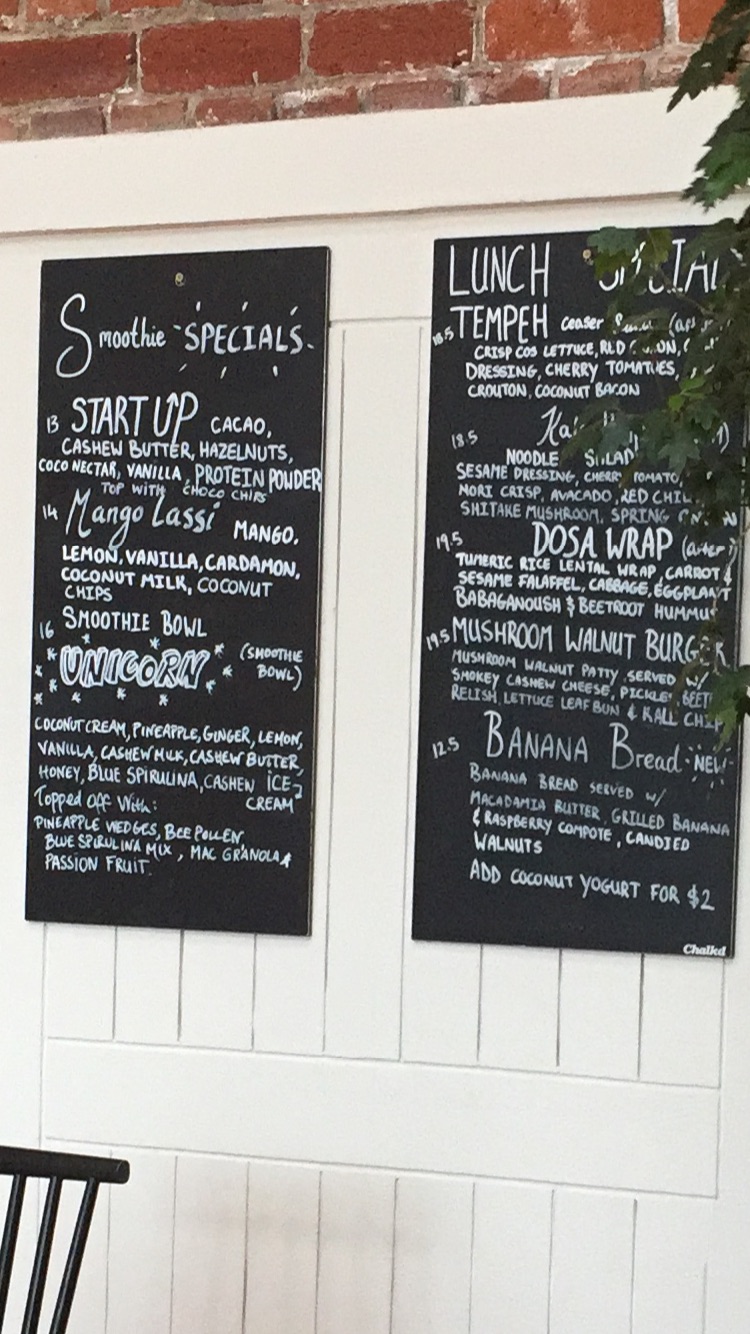 Smoothie SPECIALS
13 START UP CACAO,
CASHEW BUTTER, HAZELNUTS,
COCO NECTAR, VANILLA, PROTEIN POWDER
TOP WITH CHOCO CHIPS
14 Mango Lassi MANGO,
LEMON, VANILLA, CARDAMON,
COCONUT MILK, COCONUT
CHIPS
16 SMOOTHIE BOWL
UNICORN (SMOOTHIE
BOWL)
COCONUT CREAM, PINEAPPLE, GINGER, LEMON,
VANILLA, CASHEW MILK, CASHEW BUTTER,
HONEY, BLUE SPIRULINA, CASHEW ICE
CREAM
Topped Off With:
PINEAPPLE WEDGES, BEE POLLEN
BLUE SPIRULINA MIX, MAC GRANOLA &
PASSION FRUIT.
LUNCH
18.5 TEMPEH ceaser
CRISP COS LETTUCE, RED
DRESSING, CHERRY TOMATOES,
CROUTON, COCONUT BACON
18.5
NOODLE SALAD
SESAME DRESSING, CHERRY TOMATO
NORI CRISP, AVACADO, RED
SHITAKE MUSHROOM, SPRING
19.5 DOSA WRAP
TUMERIC RICE LENTAL WRAP, CARROT &
SESAME FALAFFEL, CABBAGE, EGGPLANT
BABAGANOUSH & BEETROOT
19.5 MUSHROOM WALNUT
MUSHROOM WALNUT PATTY SERVED W/
SMOKEY CASHEW CHEESE, PICKLE,
RELISH, LETTUCE LEAF BUN & KALE
12.5 BANANA Bread NEW
BANANA BREAD SERVED W/
MACADAMIA BUTTER, GRILLED BANANA
& RASPBERRY COMPOTE, CANDIED
WALNUTS
ADD COCONUT YOGURT FOR $2
Chalkd